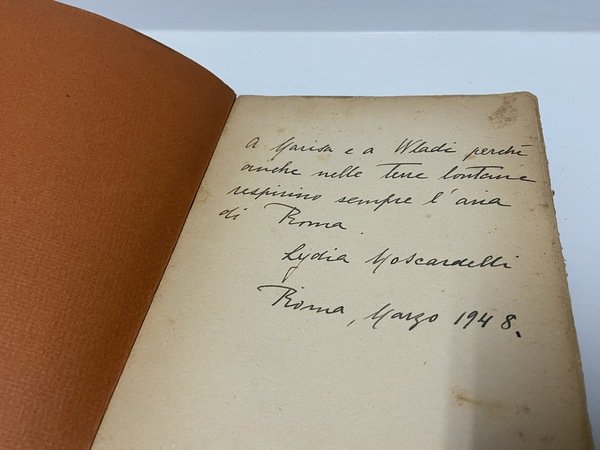 A Marisa e a Wladi perchè
anche nelle terre lontane
respirino sempre l'aria
di Roma.
Lydia Moscardelli
Roma, Marzo 1948.